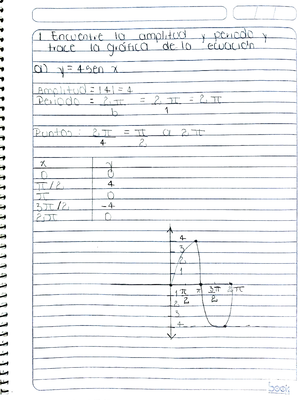 1 Encuentre la amplitud y periodo y
trace la gráfica de la ecuación
a) y = 4 sen x
Amplitud = |4| = 4
Periodo = 2π/b = 2π/1 = 2π
Puntos: 2π/4 = π/2 a 2π
x y
0 0
π/2 4
π 0
3π/2 -4
2π 0
4
3
2
1
1 π/2 π 3π/2 2π
2
3
4
book